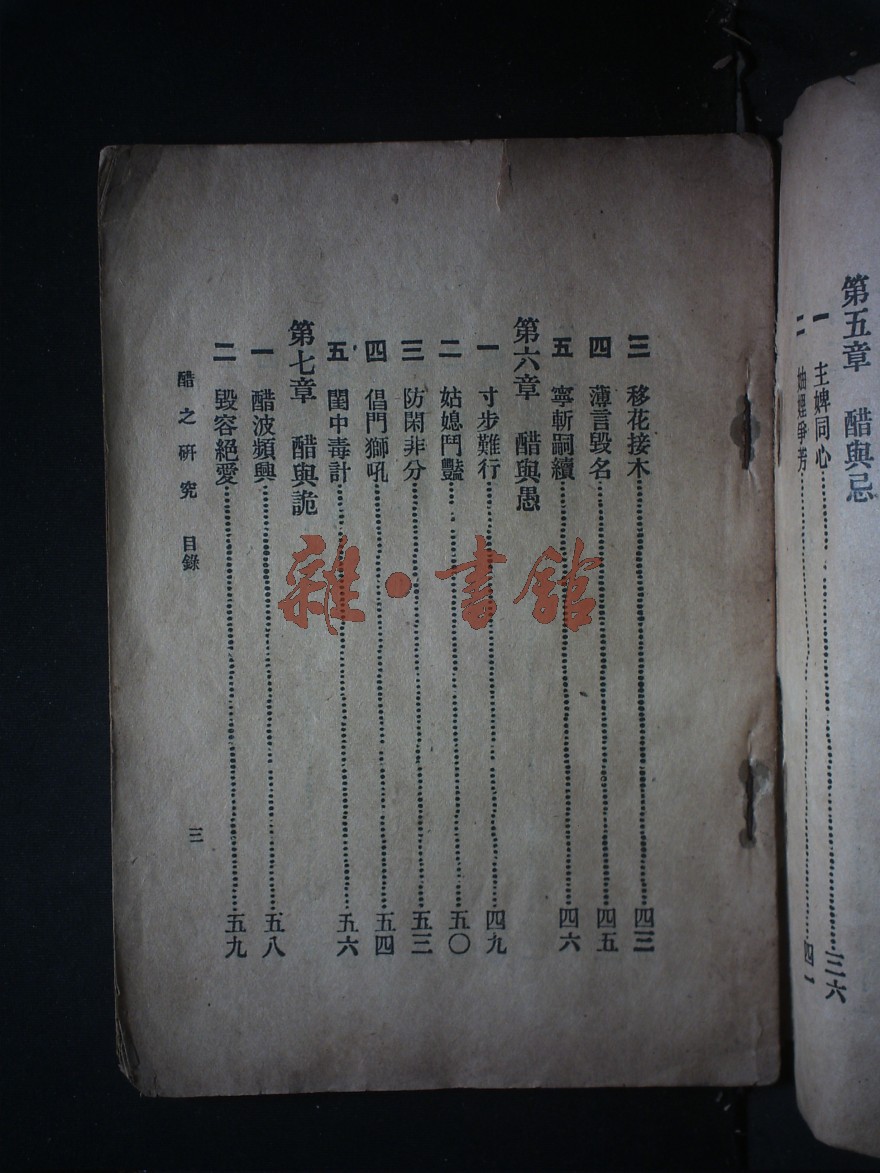 第五章 醋與忌
一 主婢同心 三六
二 妯娌爭芳 四一
三 移花接木 四三
四 薄言毀名 四五
五 寧斬嗣續 四六
第六章 醋與愚
一 寸步難行 四九
二 姑媳鬥豔 五〇
三 防閑非分 五三
四 倡門獅吼 五四
五 閨中毒計 五六
第七章 醋與詭
一 醋波頻興 五八
二 毀容絕愛 五九
醋之研究 目錄 三
雜·書館